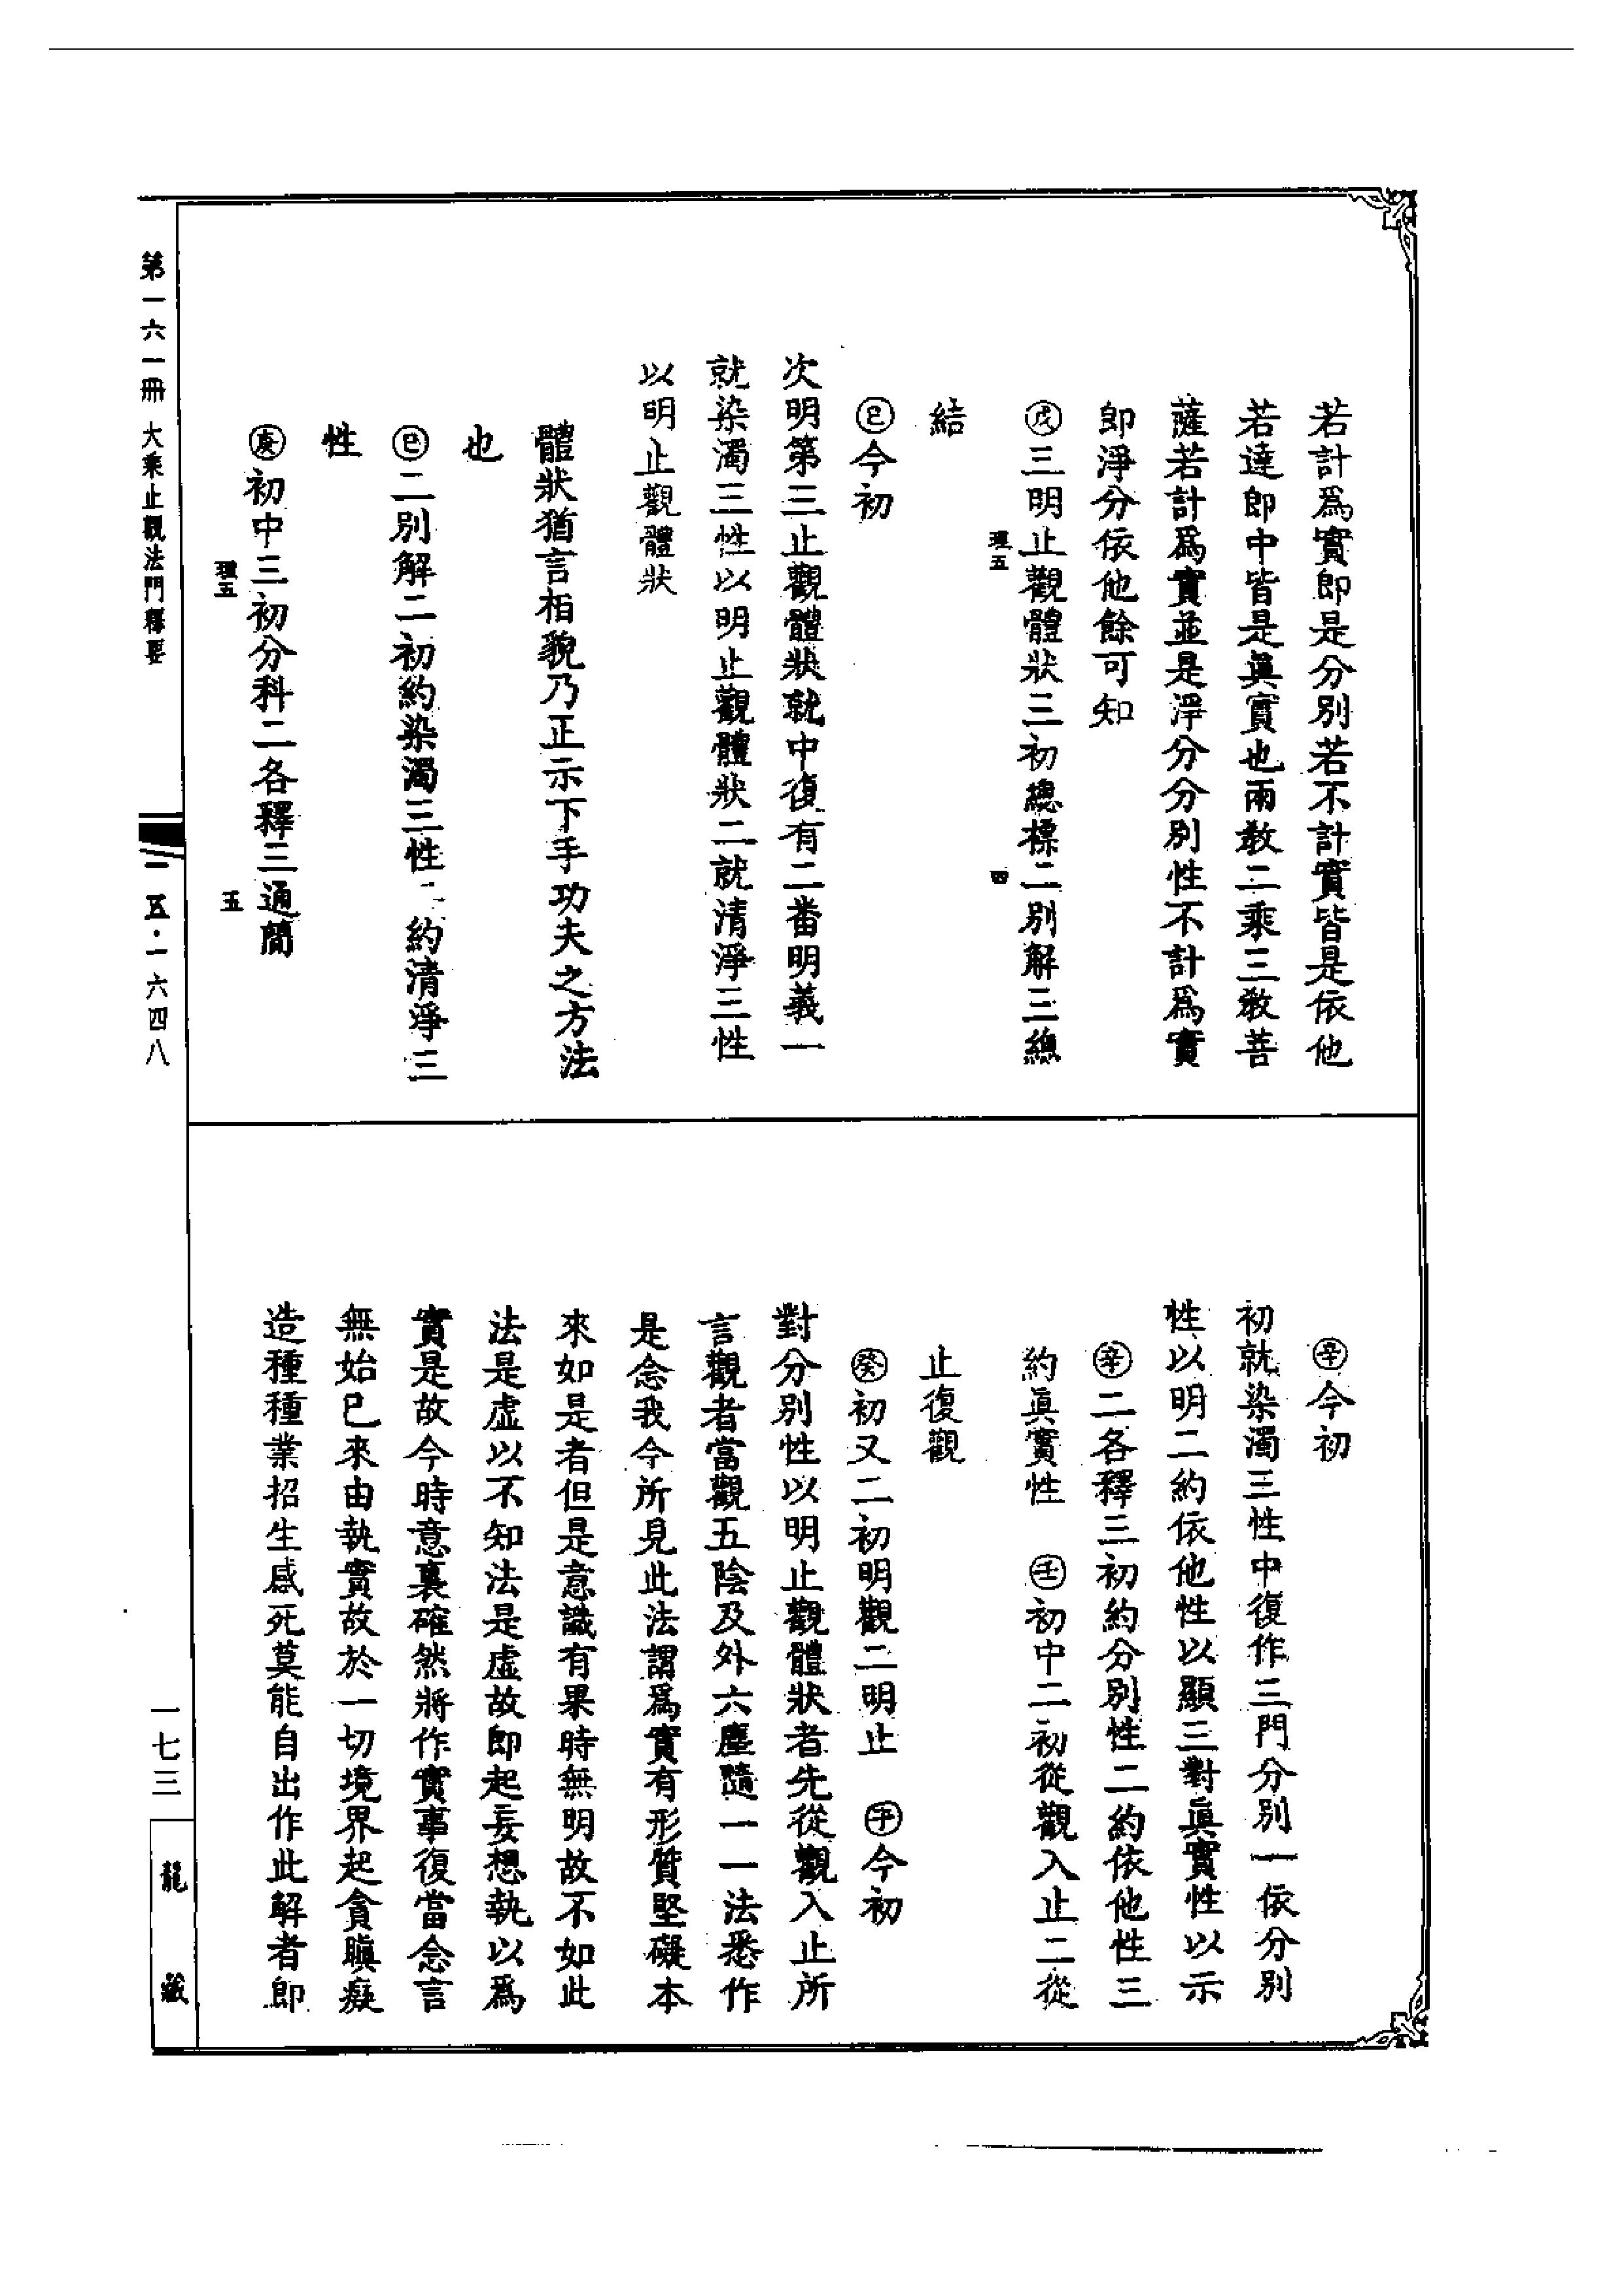 若計爲實即是分別若不計實皆是依他
若達即中皆是眞實也兩教二乘三教菩
薩若計爲實並是淨分分別性不計爲實
即淨分依他餘可知
㊅三明止觀體狀三初總標二別解三總
理五
四
結
㊂今初
次明第三止觀體狀就中復有二番明義一
就染濁三性以明止觀體狀二就清淨三性
以明止觀體狀
體狀猶言相貌乃正示下手功夫之方法
也
二別解二初約染濁三性二約清淨三
性
初中三初分科二各釋三通簡
理五
五
辛今初
初就染濁三性中復作三門分別一依分別
性以明二約依他性以顯三對眞實性以示
辛二各釋三初約分別性二約依他性三
約眞實性 壬初中二初從觀入止二從
止復觀
癸初又二初明觀二明止 子今初
對分別性以明止觀體狀者先從觀入止所
言觀者當觀五陰及外六塵隨一一法悉作
是念我今所見此法謂爲實有形質堅礙本
來如是者但是意識有果時無明故不如此
法是虛以不知法是虛故即起妄想執以爲
實是故今時意裏確然將作實事復當念言
無始已來由執實故於一切境界起貪瞋癡
造種種業招生感死莫能自出作此解者即
第一六一冊 大乘止觀法門釋要
一五·一六四八
一七三
龍藏